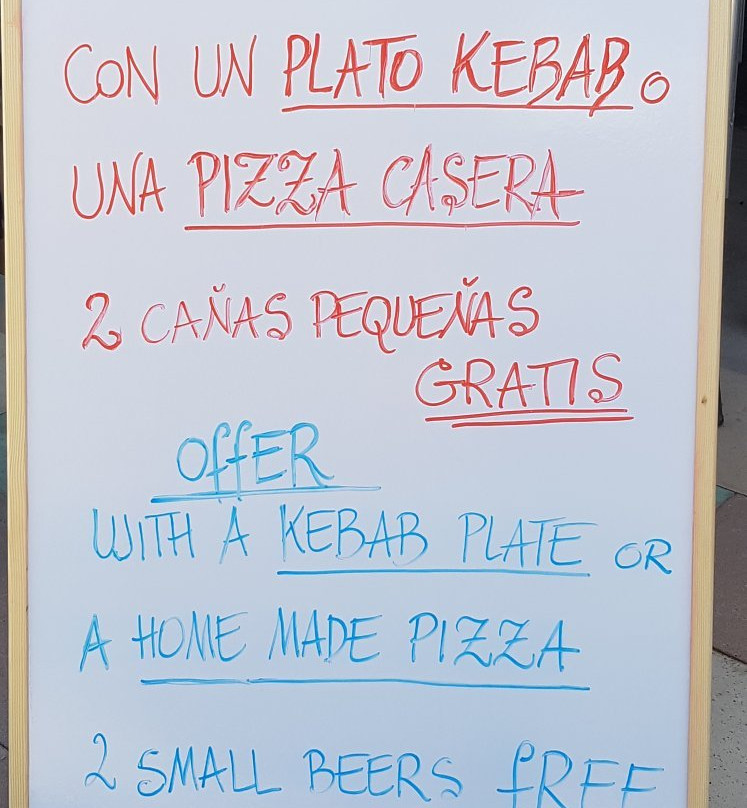 CON UN PLATO KEBAB O
UNA PIZZA CASERA
2 CAÑAS PEQUEÑAS
GRATIS
OffER
WITH A KEBAB PLATE OR
A HOME MADE PIZZA
2 SMALL BEERS fREE